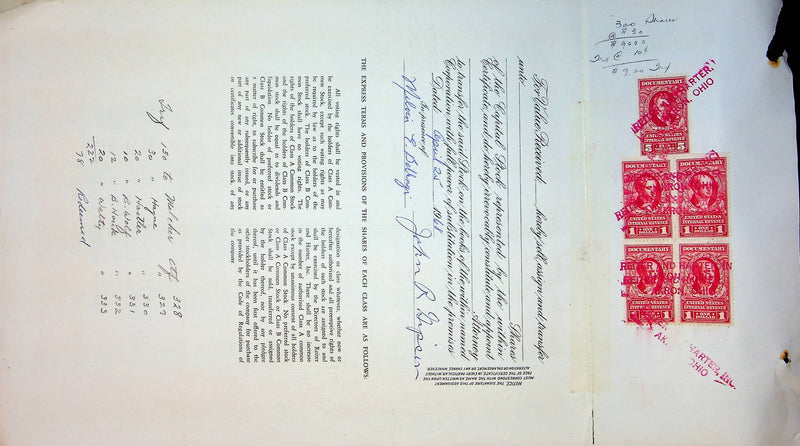 300 Shares
@ $30
$9000
Tax @ 10¢
$9.00 Tax
DOCUMENTARY
UNITED STATES
INTERNAL REVENUE
5
DOCUMENTARY
UNITED STATES
INTERNAL REVENUE
1 DOLLAR 1
DOCUMENTARY
UNITED STATES
INTERNAL REVENUE
1 DOLLAR 1
DOCUMENTARY
UNITED STATES
INTERNAL REVENUE
1 DOLLAR 1
DOCUMENTARY
UNITED STATES
INTERNAL REVENUE
1 DOLLAR 1
HARTER, INC.
OHIO
For Value Received, hereby sell, assign and transfer
unto
Shares
of the Capital Stock represented by the within
Certificate, and do hereby irrevocably constitute and appoint
Attorney
to transfer the said Stock on the books of the within named
Corporation with full power of substitution in the premises.
Dated April 25 1961
In presence of
John R. Gipson
NOTICE. THE SIGNATURE OF THIS ASSIGNMENT
MUST CORRESPOND WITH THE NAME AS WRITTEN UPON THE
FACE OF THE CERTIFICATE, IN EVERY PARTICULAR, WITHOUT
ALTERATION OR ENLARGEMENT OR ANY CHANGE WHATEVER.
THE EXPRESS TERMS AND PROVISIONS OF THE SHARES OF EACH CLASS ARE AS FOLLOWS:
All voting rights shall be vested in and
be exercised by the holders of Class A Com-
mon Stock, except such voting rights as may
be required by law as to the holders of the
preferred stock. The holders of Class B Com-
mon Stock shall have no voting rights. The
rights of the holders of Class A Common Stock
and the rights of the holders of Class B Com-
mon stock shall be equal as to dividends and
liquidation. No holder of preferred stock or
Class B Common Stock shall be entitled as
a matter of right, to subscribe for or purchase
any part of any subsequently issued, or any
part of any new or additional issue of stock
or certificates convertible into stock, of any
designation or class whatever, whether now or
hereafter authorized and all preemptive rights of
the holders of such stock are assigned to and
shall be exercised by the Directors of Reiter
and Harter, Inc. There shall be no increase
in the number of authorized Class A common
stock except by unanimous consent of all holders
of Class A Common Stock. No preferred stock
or Class A Common Stock or Class B Common
Stock shall be sold, transferred or assigned
by the holder thereof, nor by any pledgee
thereof, until it has been first offered to the
other stockholders of the company for purchase
as provided by the Code of Regulations of
the company
130 to Melcher ctf 328
30 " Hayne " 329
20 " " 330
10 " R. Wolf " 331
12 " B. " 332
20 " " 333
222
78